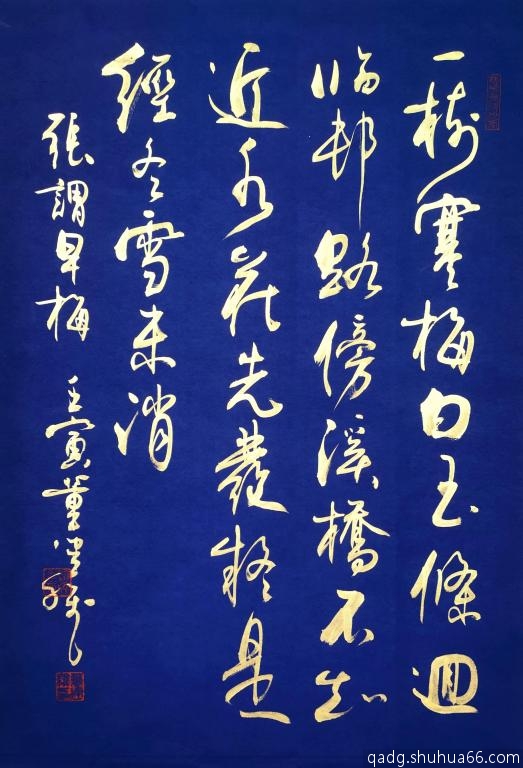 一樹寒梅白玉條迴
临邨路傍溪橋不知
近水花先發疑是
經冬雪未消
張謂早梅 壬寅董
qadg.shuhua66.com